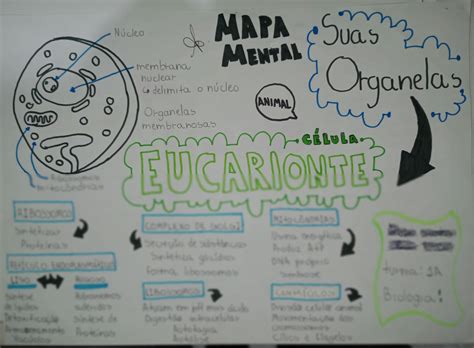 Núcleo
membrana
nuclear
↳ delimita o núcleo
Organelas
membranosas
Ribossomos
mitocôndrias
MAPA
MENTAL
ANIMAL
Suas
Organelas
CÉLULA
EUCARIONTE
RIBOSSOMOS
Sintetizar
Proteínas
RETÍCULO ENDOPLASMÁTICO
LISO
RUGOSO
Síntese
de lipídios
Detoxificação
Armazenamento
Ribossomos
aderidos
Síntese de
Proteínas
COMPLEXO DE GOLGI
Secreção de substâncias
Sintetiza glicídios
forma lisossomos
LISOSSOMOS
Atuam em pH mais ácido
Digestão intracelular
Autofagia
MITOCÔNDRIAS
Usina energética
Produz ATP
DNA próprio
Simbiose
CENTRÍOLOS
Divisão celular animal
Movimentação dos
cromossomos
Cílios e Flagelos
turma: 1A
Biologia!